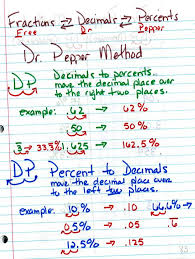 Fractions ⇄ Decimals ⇄ Percents
Free Dr. Pepper
Dr. Pepper Method
DP Decimals to percents
move the decimal place over
to the right two places.
example: .62 → 62%
1.625 → 162.5%
DP Percent to Decimals
move the decimal place over
to the left two places.
Example: 10% → .10
5% → .05
12.5% → .125